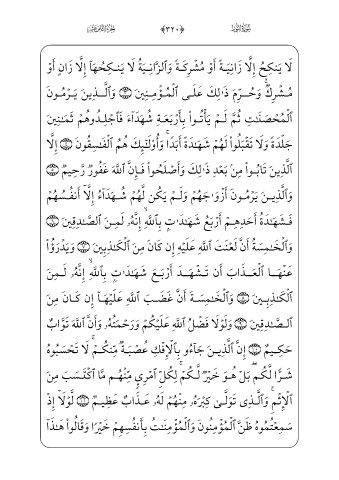 سُورَةُ النُّورِ ﴿٣٢٠﴾ الجُزْءُ الثَّامِنَ عَشَرَ
لَا يَنكِحُ إِلَّا زَانِيَةً أَوْ مُشْرِكَةً وَٱلزَّانِيَةُ لَا يَنكِحُهَآ إِلَّا زَانٍ أَوْ
مُشْرِكٌ وَحُرِّمَ ذَٰلِكَ عَلَى ٱلْمُؤْمِنِينَ ۝ وَٱلَّذِينَ يَرْمُونَ
ٱلْمُحْصَنَٰتِ ثُمَّ لَمْ يَأْتُوا۟ بِأَرْبَعَةِ شُهَدَآءَ فَٱجْلِدُوهُمْ ثَمَٰنِينَ
جَلْدَةً وَلَا تَقْبَلُوا۟ لَهُمْ شَهَٰدَةً أَبَدًا وَأُو۟لَٰٓئِكَ هُمُ ٱلْفَٰسِقُونَ ۝ إِلَّا
ٱلَّذِينَ تَابُوا۟ مِنۢ بَعْدِ ذَٰلِكَ وَأَصْلَحُوا۟ فَإِنَّ ٱللَّهَ غَفُورٌ رَّحِيمٌ ۝
وَٱلَّذِينَ يَرْمُونَ أَزْوَٰجَهُمْ وَلَمْ يَكُن لَّهُمْ شُهَدَآءُ إِلَّآ أَنفُسُهُمْ
فَشَهَٰدَةُ أَحَدِهِمْ أَرْبَعُ شَهَٰدَٰتٍۭ بِٱللَّهِ إِنَّهُۥ لَمِنَ ٱلصَّٰدِقِينَ ۝
وَٱلْخَٰمِسَةُ أَنَّ لَعْنَتَ ٱللَّهِ عَلَيْهِ إِن كَانَ مِنَ ٱلْكَٰذِبِينَ ۝ وَيَدْرَؤُا۟
عَنْهَا ٱلْعَذَابَ أَن تَشْهَدَ أَرْبَعَ شَهَٰدَٰتٍۭ بِٱللَّهِ إِنَّهُۥ لَمِنَ
ٱلْكَٰذِبِينَ ۝ وَٱلْخَٰمِسَةَ أَنَّ غَضَبَ ٱللَّهِ عَلَيْهَآ إِن كَانَ مِنَ
ٱلصَّٰدِقِينَ ۝ وَلَوْلَا فَضْلُ ٱللَّهِ عَلَيْكُمْ وَرَحْمَتُهُۥ وَأَنَّ ٱللَّهَ تَوَّابٌ
حَكِيمٌ ۝ إِنَّ ٱلَّذِينَ جَآءُو بِٱلْإِفْكِ عُصْبَةٌ مِّنكُمْ لَا تَحْسَبُوهُ
شَرًّا لَّكُم بَلْ هُوَ خَيْرٌ لَّكُمْ لِكُلِّ ٱمْرِئٍ مِّنْهُم مَّا ٱكْتَسَبَ مِنَ
ٱلْإِثْمِ وَٱلَّذِى تَوَلَّىٰ كِبْرَهُۥ مِنْهُمْ لَهُۥ عَذَابٌ عَظِيمٌ ۝ لَّوْلَآ إِذْ
سَمِعْتُمُوهُ ظَنَّ ٱلْمُؤْمِنُونَ وَٱلْمُؤْمِنَٰتُ بِأَنفُسِهِمْ خَيْرًا وَقَالُوا۟ هَٰذَآ